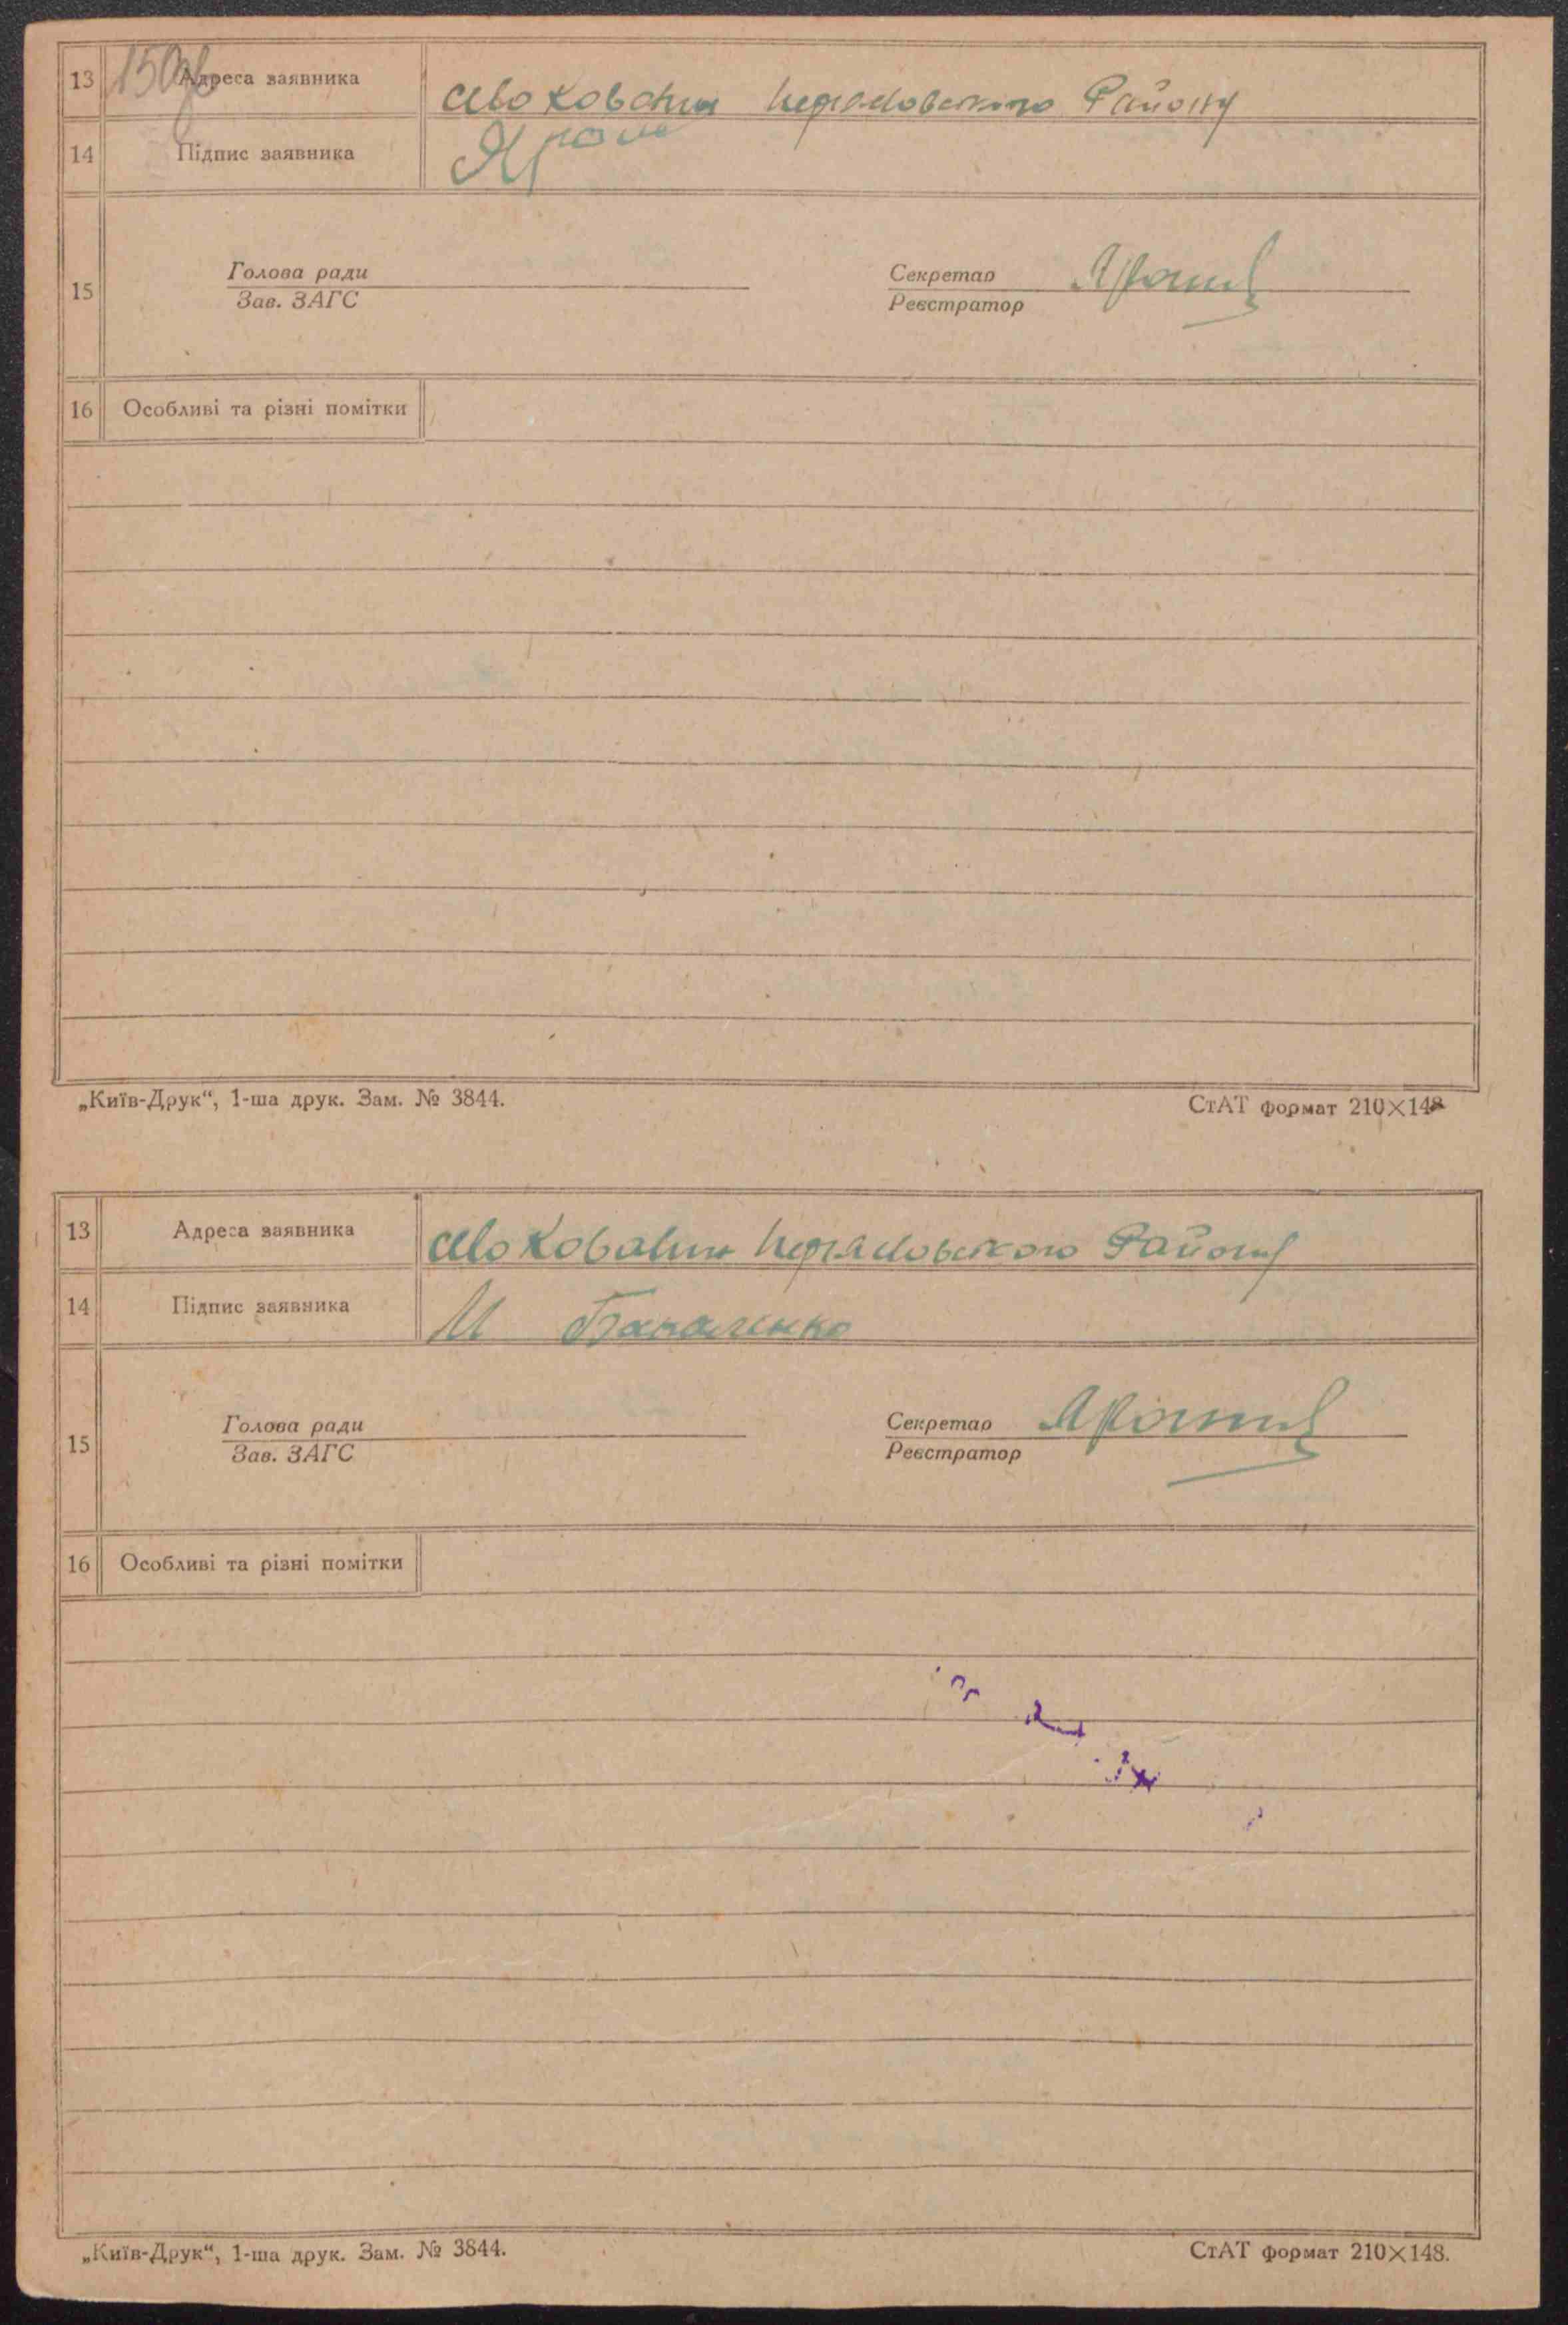 13 150зв Адреса заявника село Ковалин Переяславського Району
14 Підпис заявника Яро
15 Голова ради Секретар
Зав. ЗАГС Реєстратор
16 Особливі та різні помітки
„Київ-Друк“, 1-ша друк. Зам. № 3844. СтАТ формат 210×148
13 Адреса заявника село Ковалин Району
14 Підпис заявника
15 Голова ради Секретар
Зав. ЗАГС Реєстратор
16 Особливі та різні помітки
„Київ-Друк“, 1-ша друк. Зам. № 3844. СтАТ формат 210×148.